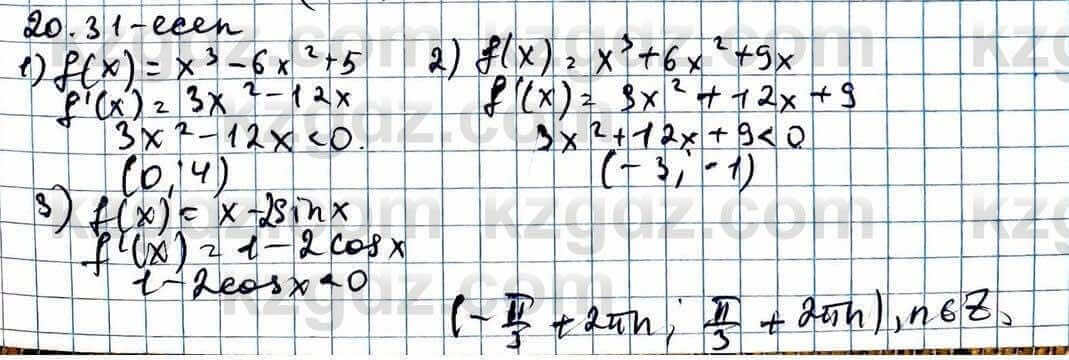 20.31-есеп
1) f(x) = x³ - 6x² + 5
f'(x) = 3x² - 12x
3x² - 12x < 0.
(0; 4)
2) f(x) = x³ + 6x² + 9x
f'(x) = 3x² + 12x + 9
3x² + 12x + 9 < 0
(-3; -1)
3) f(x) = x - 2sinx
f'(x) = 1 - 2cosx
1 - 2cosx < 0
(-π/3 + 2πn; π/3 + 2πn), n∈Z,
kzgdz.com